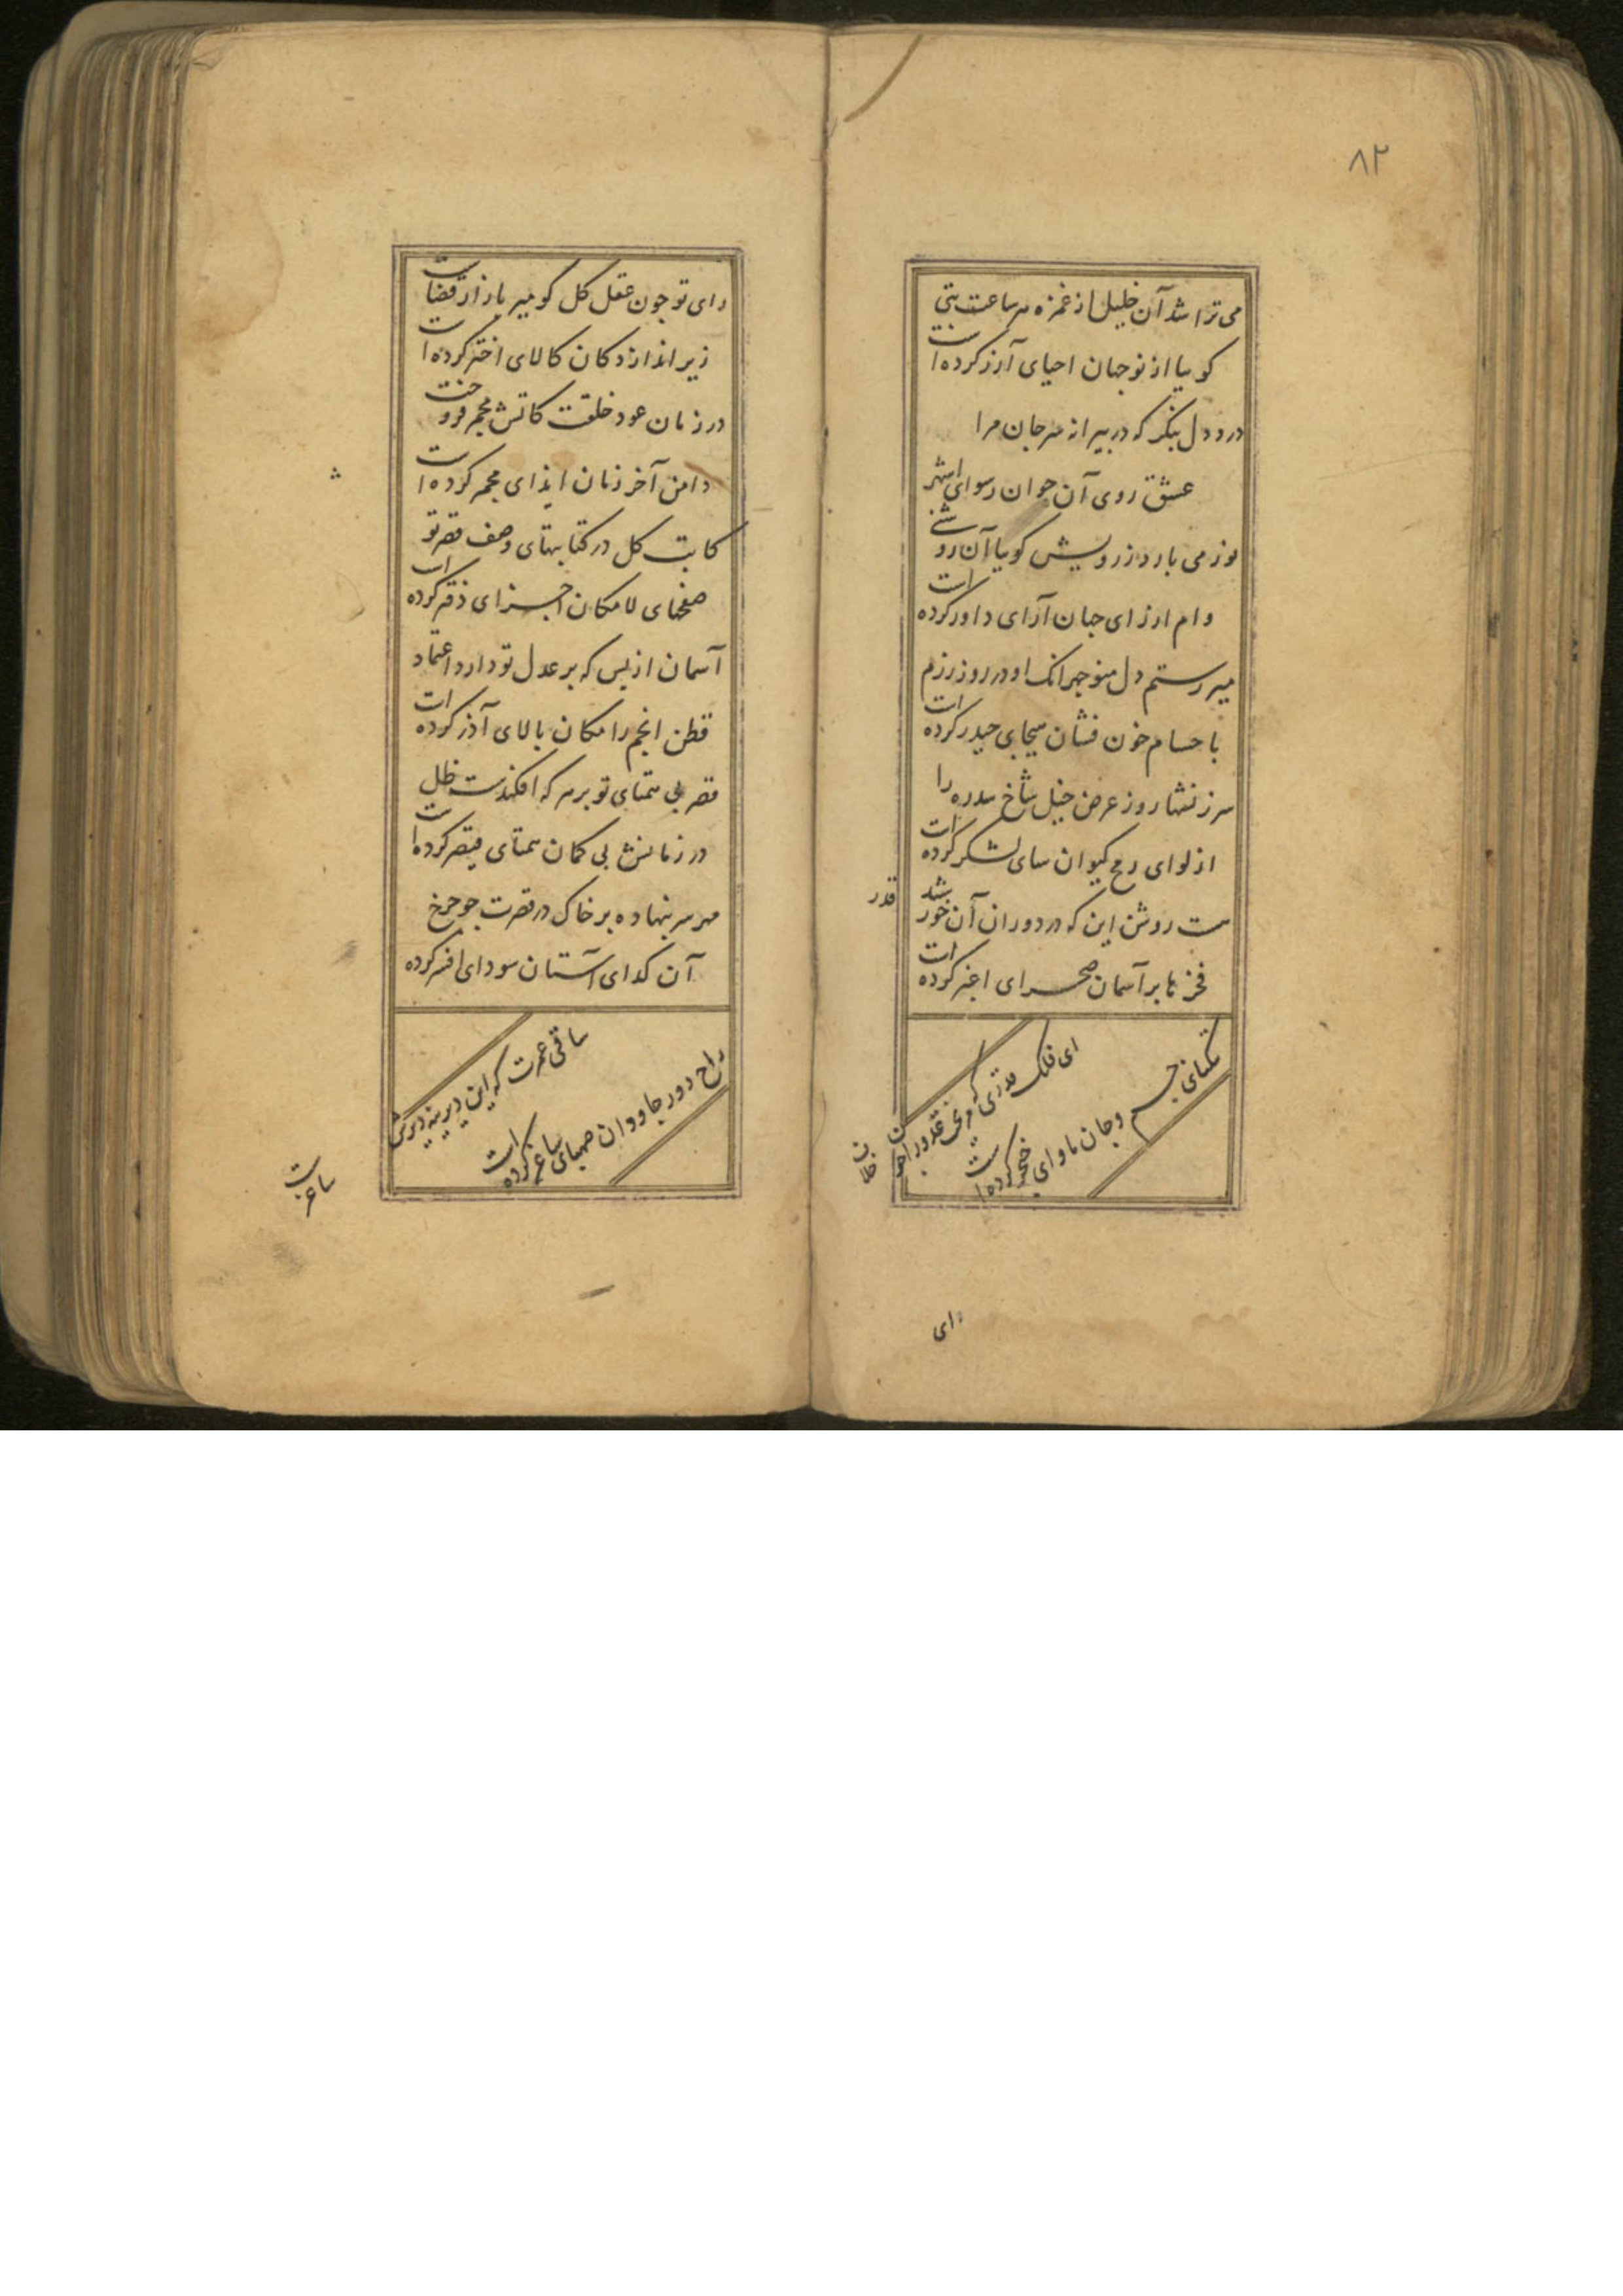 ۸۲
می تراشد آن خلیل از غمزه هر ساعت بتی
کویا از نو جهان احیای آزر کرده است
درد دل بنکر که در پیرانه سر جان مرا
عشق روی آن جوان رسوای شهر
نور می بارد ز رویش کویا آن رو
وام از رای جهان آرای داور کرده است
میر رستم دل منوچهر انک او در روز رزم
با حسام خون فشان حیدر کرده است
روز عرض خیل شاخ سدره را
از لوای رمح کیوان سای لشکر کرده است
هست روشن این که در دوران آن خورشید
قدر
فخرها بر آسمان صحرای اغبر کرده است
ای فلک قدری که
تنکنای جسم و جان ماوای خنجر کرده است
رای
رای تو چون عقل کل کو میر بازار قضاست
زیر انداز دکان کالای اختر کرده است
در زمان عود خلقت کاتش مجمر فروخت
دامن آخر زمان ایذای مجمر کرده است
کاتب کل در کتابتهای وصف قصر تو
صفحهای لامکان اجزای دفتر کرده است
آسمان از بس که بر عدل تو دارد اعتماد
قطن انجم را مکان بالای آذر کرده است
قصر بی همتای تو بر هر که افکندست ظل
در زمانش بی کمان همتای قیصر کرده است
هر سر بنهاده بر خاک در قصرت چو چرخ
آن کدای آستان سودای افسر کرده
ساقی عمرت که این دیرینه دیرش
راح دور جاودان صهبای ساغر کرده است
ساغرت